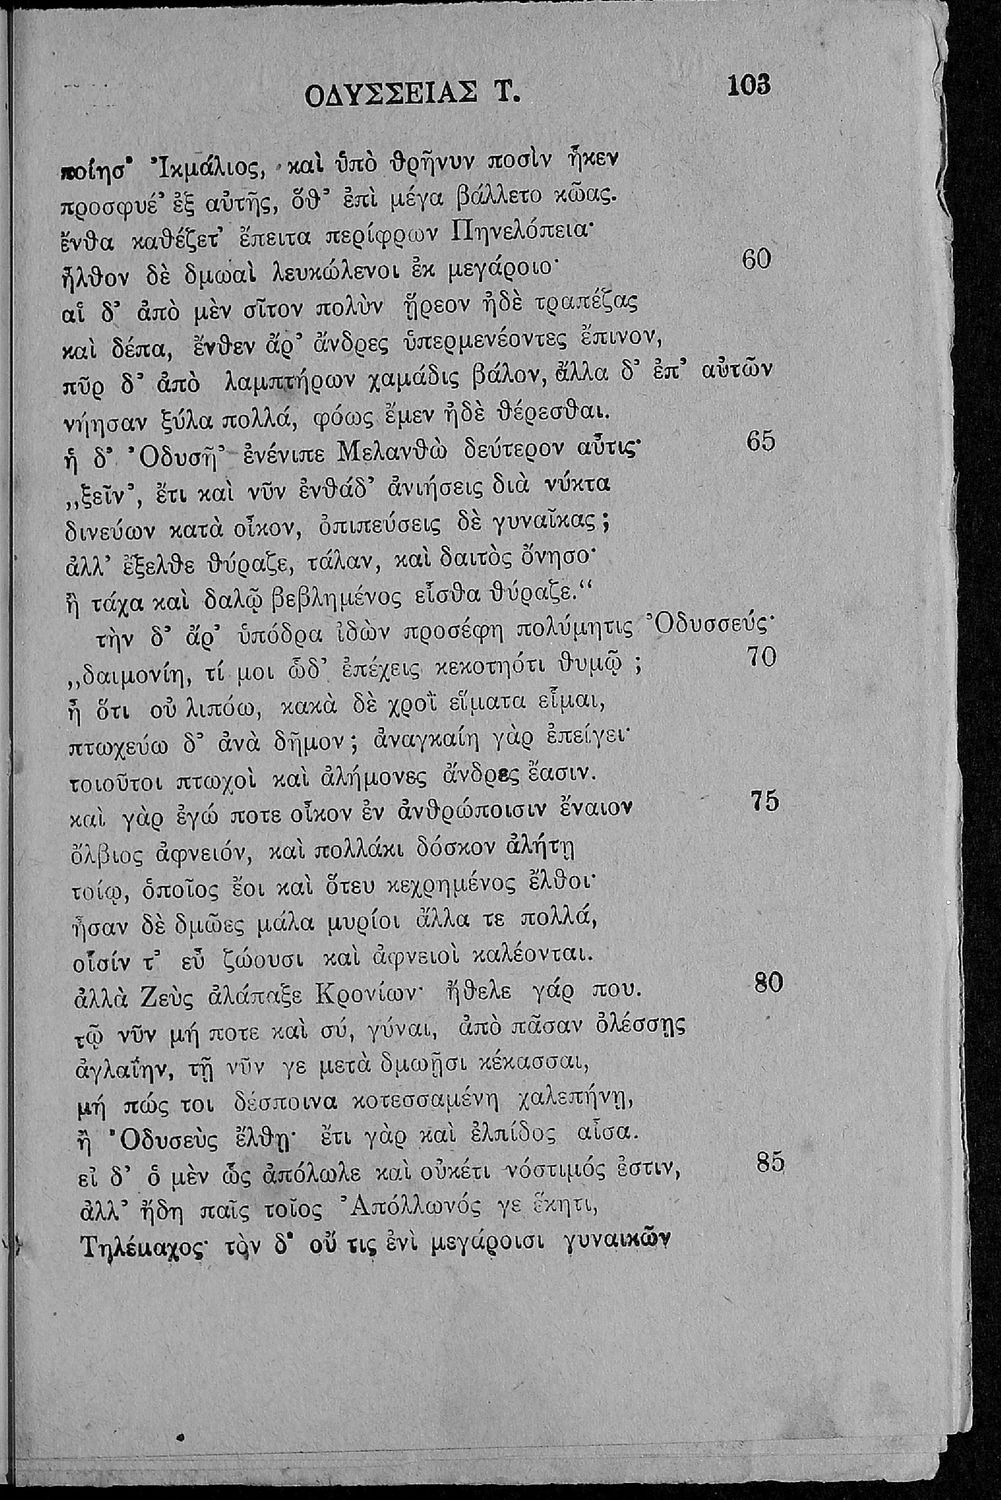 ΟΔΥΣΣΕΙΑΣ Τ. 103
ποίησ᾽ Ἰκμάλιος, καὶ ὑπὸ θρῆνυν ποσὶν ἧκεν
προσφυέ᾽ ἐξ αὐτῆς, ὅθ᾽ ἐπὶ μέγα βάλλετο κῶας.
ἔνθα καθέζετ᾽ ἔπειτα περίφρων Πηνελόπεια·
ἦλθον δὲ δμωαὶ λευκώλενοι ἐκ μεγάροιο· 60
αἱ δ᾽ ἀπὸ μὲν σῖτον πολὺν ᾕρεον ἠδὲ τραπέζας
καὶ δέπα, ἔνθεν ἄρ᾽ ἄνδρες ὑπερμενέοντες ἔπινον,
πῦρ δ᾽ ἀπὸ λαμπτήρων χαμάδις βάλον, ἄλλα δ᾽ ἐπ᾽ αὐτῶν
νήησαν ξύλα πολλά, φόως ἔμεν ἠδὲ θέρεσθαι.
ἡ δ᾽ Ὀδυσῆ᾽ ἐνένιπε Μελανθὼ δεύτερον αὖτις· 65
„ξεῖν᾽, ἔτι καὶ νῦν ἐνθάδ᾽ ἀνιήσεις διὰ νύκτα
δινεύων κατὰ οἶκον, ὀπιπεύσεις δὲ γυναῖκας;
ἀλλ᾽ ἔξελθε θύραζε, τάλαν, καὶ δαιτὸς ὄνησο·
ἢ τάχα καὶ δαλῷ βεβλημένος εἶσθα θύραζε.“
τὴν δ᾽ ἄρ᾽ ὑπόδρα ἰδὼν προσέφη πολύμητις Ὀδυσσεύς· 70
„δαιμονίη, τί μοι ὧδ᾽ ἐπέχεις κεκοτηότι θυμῷ;
ἦ ὅτι οὐ λιπόω, κακὰ δὲ χροῒ εἵματα εἷμαι,
πτωχεύω δ᾽ ἀνὰ δῆμον; ἀναγκαίη γὰρ ἐπείγει·
τοιοῦτοι πτωχοὶ καὶ ἀλήμονες ἄνδρες ἔασιν.
καὶ γὰρ ἐγώ ποτε οἶκον ἐν ἀνθρώποισιν ἔναιον 75
ὄλβιος ἀφνειόν, καὶ πολλάκι δόσκον ἀλήτῃ
τοίῳ, ὁποῖος ἔοι καὶ ὅτευ κεχρημένος ἔλθοι·
ἦσαν δὲ δμῶες μάλα μυρίοι ἄλλα τε πολλά,
οἷσίν τ᾽ εὖ ζώουσι καὶ ἀφνειοὶ καλέονται.
ἀλλὰ Ζεὺς ἀλάπαξε Κρονίων· ἤθελε γάρ που. 80
τῷ νῦν μή ποτε καὶ σύ, γύναι, ἀπὸ πᾶσαν ὀλέσσῃς
ἀγλαΐην, τῇ νῦν γε μετὰ δμωῇσι κέκασσαι,
μή πώς τοι δέσποινα κοτεσσαμένη χαλεπήνῃ,
ἢ Ὀδυσεὺς ἔλθῃ· ἔτι γὰρ καὶ ἐλπίδος αἶσα.
εἰ δ᾽ ὁ μὲν ὣς ἀπόλωλε καὶ οὐκέτι νόστιμός ἐστιν, 85
ἀλλ᾽ ἤδη παῖς τοῖος Ἀπόλλωνός γε ἕκητι,
Τηλέμαχος· τὸν δ᾽ οὔ τις ἐνὶ μεγάροισι γυναικῶν